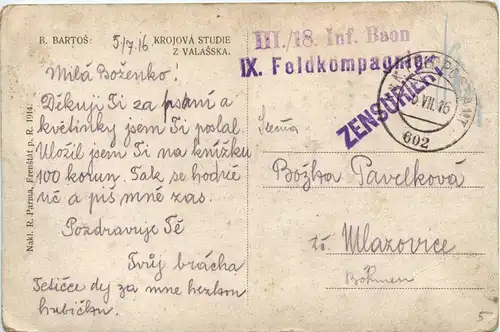 B. BARTOŠ: KROJOVÁ STUDIE
Z VALAŠSKA.
5/7.16
Milá Boženko!
Děkuji Ti za psaní a
květinky jsem Ti poslal
Uložil jsem Ti na knížku
100 korun. Tak se hodně
uč a piš mné zas.
Pozdravuje Tě
Tvůj brácha
Tetičce dej za mne hezkou
hubičku.
Nakl. R. Parma, Frenštát p. R. 1914.
III./18. Inf. Baon
IX. Feldkompagnie
ZENSURIERT
VII. 16
602
Slečna
Božka Pavelková
Mlazovice
Böhmen
5